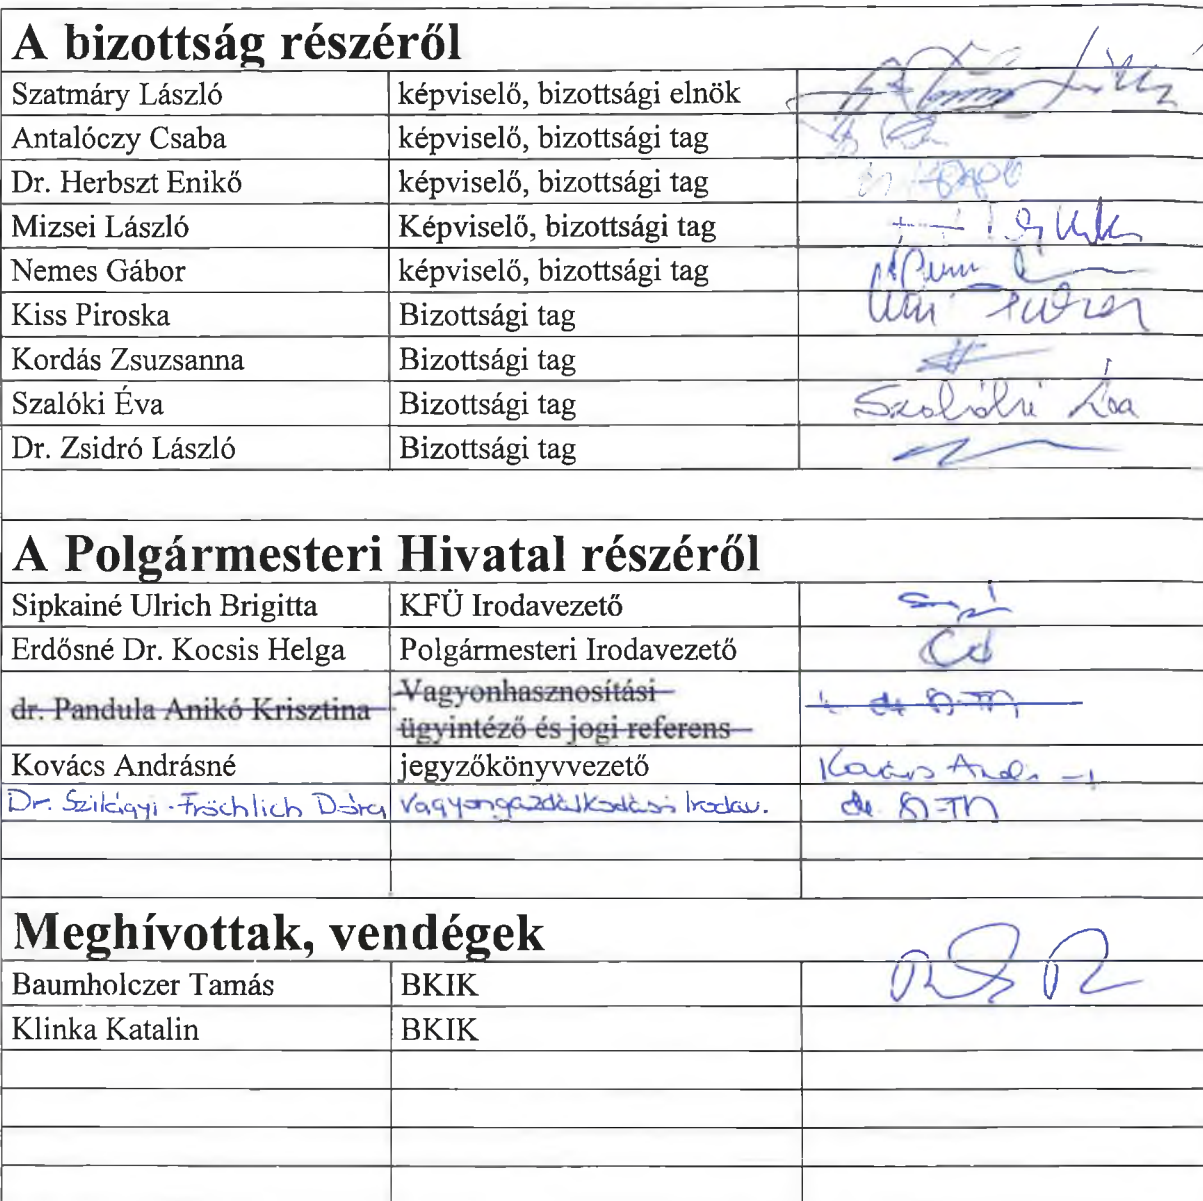 A bizottság részéről
Szatmáry László képviselő, bizottsági elnök
Antalóczy Csaba képviselő, bizottsági tag
Dr. Herbszt Enikő képviselő, bizottsági tag
Mizsei László Képviselő, bizottsági tag
Nemes Gábor képviselő, bizottsági tag
Kiss Piroska Bizottsági tag
Kordás Zsuzsanna Bizottsági tag
Szalóki Éva Bizottsági tag Szalóki Éva
Dr. Zsidró László Bizottsági tag
A Polgármesteri Hivatal részéről
Sipkainé Ulrich Brigitta KFÜ Irodavezető
Erdősné Dr. Kocsis Helga Polgármesteri Irodavezető
dr. Pandula Anikó Krisztina Vagyonhasznosítási
ügyintéző és jogi referens
Kovács Andrásné jegyzőkönyvvezető Kovács
Dr. Szilágyi-Fröchlich Dóra Vagyongazdálkodási Irodav.
Meghívottak, vendégek
Baumholczer Tamás BKIK
Klinka Katalin BKIK